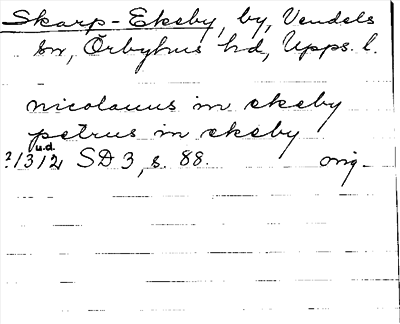 Skarp-Ekeby, by, Vendels
sn, Örbyhus hd, Upps. l.
nicolauus in ekeby
petrus in ekeby
u.d.
?1312 SD 3, s. 88. orig.